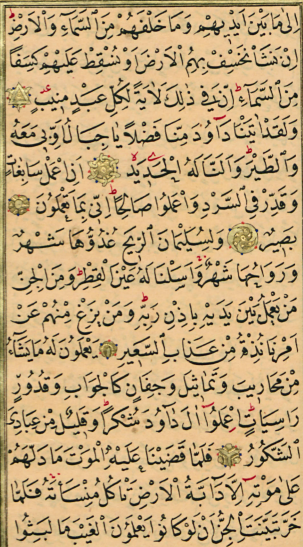 اِلٰى مَا بَيْنَ اَيْدِيهِمْ وَمَا خَلْفَهُمْ مِنَ السَّمَاءِ وَالْاَرْضِ
اِنْ نَشَأْ نَخْسِفْ بِهِمُ الْاَرْضَ اَوْ نُسْقِطْ عَلَيْهِمْ كِسَفًا
مِنَ السَّمَاءِ اِنَّ فِى ذٰلِكَ لَاٰيَةً لِكُلِّ عَبْدٍ مُنِيبٍ
وَلَقَدْ اٰتَيْنَا دَاوُدَ مِنَّا فَضْلًا يَا جِبَالُ اَوِّبِى مَعَهُ
وَالطَّيْرَ وَاَلَنَّا لَهُ الْحَدِيدَ اَنِ اعْمَلْ سَابِغَاتٍ
وَقَدِّرْ فِى السَّرْدِ وَاعْمَلُوا صَالِحًا اِنِّى بِمَا تَعْمَلُونَ
بَصِيرٌ وَلِسُلَيْمٰنَ الرِّيحَ غُدُوُّهَا شَهْرٌ
وَرَوَاحُهَا شَهْرٌ وَاَسَلْنَا لَهُ عَيْنَ الْقِطْرِ وَمِنَ الْجِنِّ
مَنْ يَعْمَلُ بَيْنَ يَدَيْهِ بِاِذْنِ رَبِّهِ وَمَنْ يَزِغْ مِنْهُمْ عَنْ
اَمْرِنَا نُذِقْهُ مِنْ عَذَابِ السَّعِيرِ يَعْمَلُونَ لَهُ مَا يَشَاءُ
مِنْ مَحَارِيبَ وَتَمَاثِيلَ وَجِفَانٍ كَالْجَوَابِ وَقُدُورٍ
رَاسِيَاتٍ اِعْمَلُوا اٰلَ دَاوُدَ شُكْرًا وَقَلِيلٌ مِنْ عِبَادِىَ
الشَّكُورُ فَلَمَّا قَضَيْنَا عَلَيْهِ الْمَوْتَ مَا دَلَّهُمْ
عَلٰى مَوْتِهِ اِلَّا دَابَّةُ الْاَرْضِ تَأْكُلُ مِنْسَاَتَهُ فَلَمَّا
خَرَّ تَبَيَّنَتِ الْجِنُّ اَنْ لَوْ كَانُوا يَعْلَمُونَ الْغَيْبَ مَا لَبِثُوا